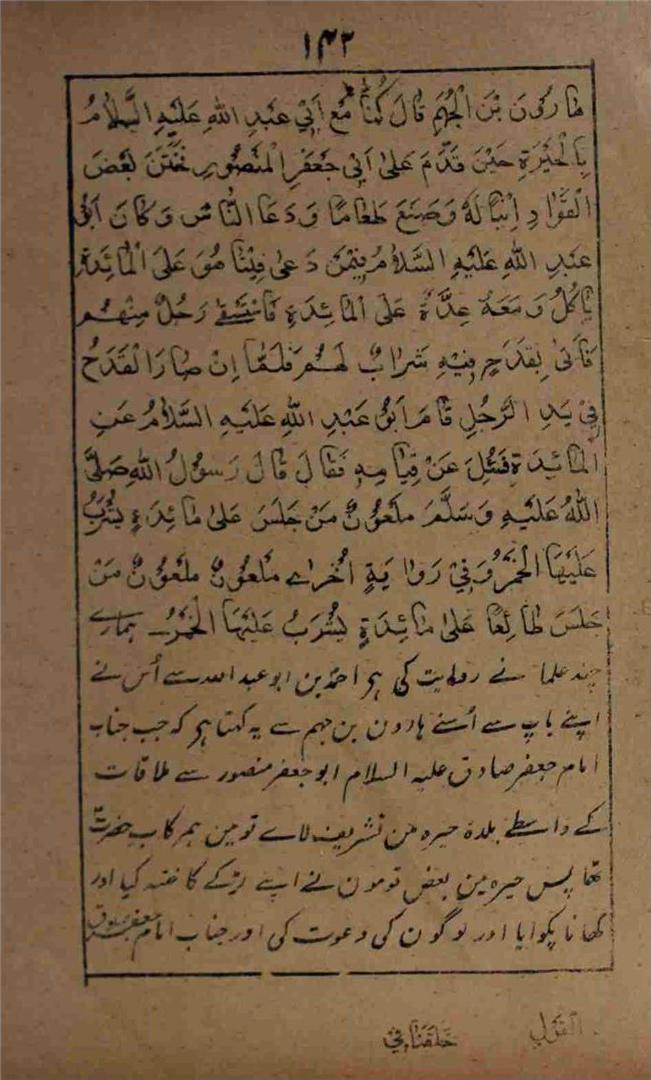 ۱۴۲
هَارُونَ بْنَ الْجُهَمِ قَالَ كُنَّا مَعَ اَبِيْ عَبْدِ اللّٰهِ عَلَيْهِ السَّلَامُ
بِالْحَيْرَةِ حِيْنَ قَدَّمَ عَلىٰ اَبِيْ جَعْفَرِ الْمَنْصُوْرِ خَتَنَ بَعْضُ
الْقُوَّادِ اِبْنًا لَهٗ وَصَنَعَ طَعَامًا وَدَعَا النَّاسَ وَكَانَ اَبُو
عَبْدِ اللّٰهِ عَلَيْهِ السَّلَامُ فِيْمَنْ دَعىٰ فَبَيْنَا هُوَ عَلَى الْمَائِدَةِ
يَاكُلُ وَمَعَهٗ عِدَّةٌ عَلَى الْمَائِدَةِ فَاسْتَسْقٰے رَجُلٌ مِنْهُمْ
فَاُتِىَ بِقَدَحٍ فِيْهِ شَرَابٌ لَهُمْ فَلَمَّا اِنْ صَارَ الْقَدَحُ
فِيْ يَدِ الرَّجُلِ قَامَ اَبُوْ عَبْدِ اللّٰهِ عَلَيْهِ السَّلَامُ عَنِ
الْمَائِدَةِ فَسُئِلَ عَنْ قِيَامِهٖ فَقَالَ قَالَ رَسُوْلُ اللّٰهِ صَلَّى
اللّٰهُ عَلَيْهِ وَسَلَّمَ مَلْعُوْنٌ مَنْ جَلَسَ عَلىٰ مَائِدَةٍ يُشْرَبُ
عَلَيْهَا الْخَمْرُ وَفِيْ رِوَايَةٍ اُخْرٰے مَلْعُوْنٌ مَلْعُوْنٌ مَنْ
جَلَسَ طَائِعًا عَلىٰ مَائِدَةٍ يُشْرَبُ عَلَيْهَا الْخَمْرُ۔ ہمارے
چند علما نے روایت کی ہر احمد بن ابو عبد اللہ سے اُس نے
اپنے باپ سے اُسنے ہارون بن جہم سے یہ کہتا ہر کہ جب جناب
امام جعفر صادق علیہ السلام ابو جعفر منصور سے ملاقات
کے واسطے بلدۂ حیرہ من تشریف لاے تو مین ہمرکاب حضرت
تھا پس حیرہ مین بعض قومون نے اپنے لڑکے کا ختنہ کیا اور
کھانا پکوایا اور لوگون کی دعوت کی اور جناب امام جعفر صادق
القول خلقنا فی